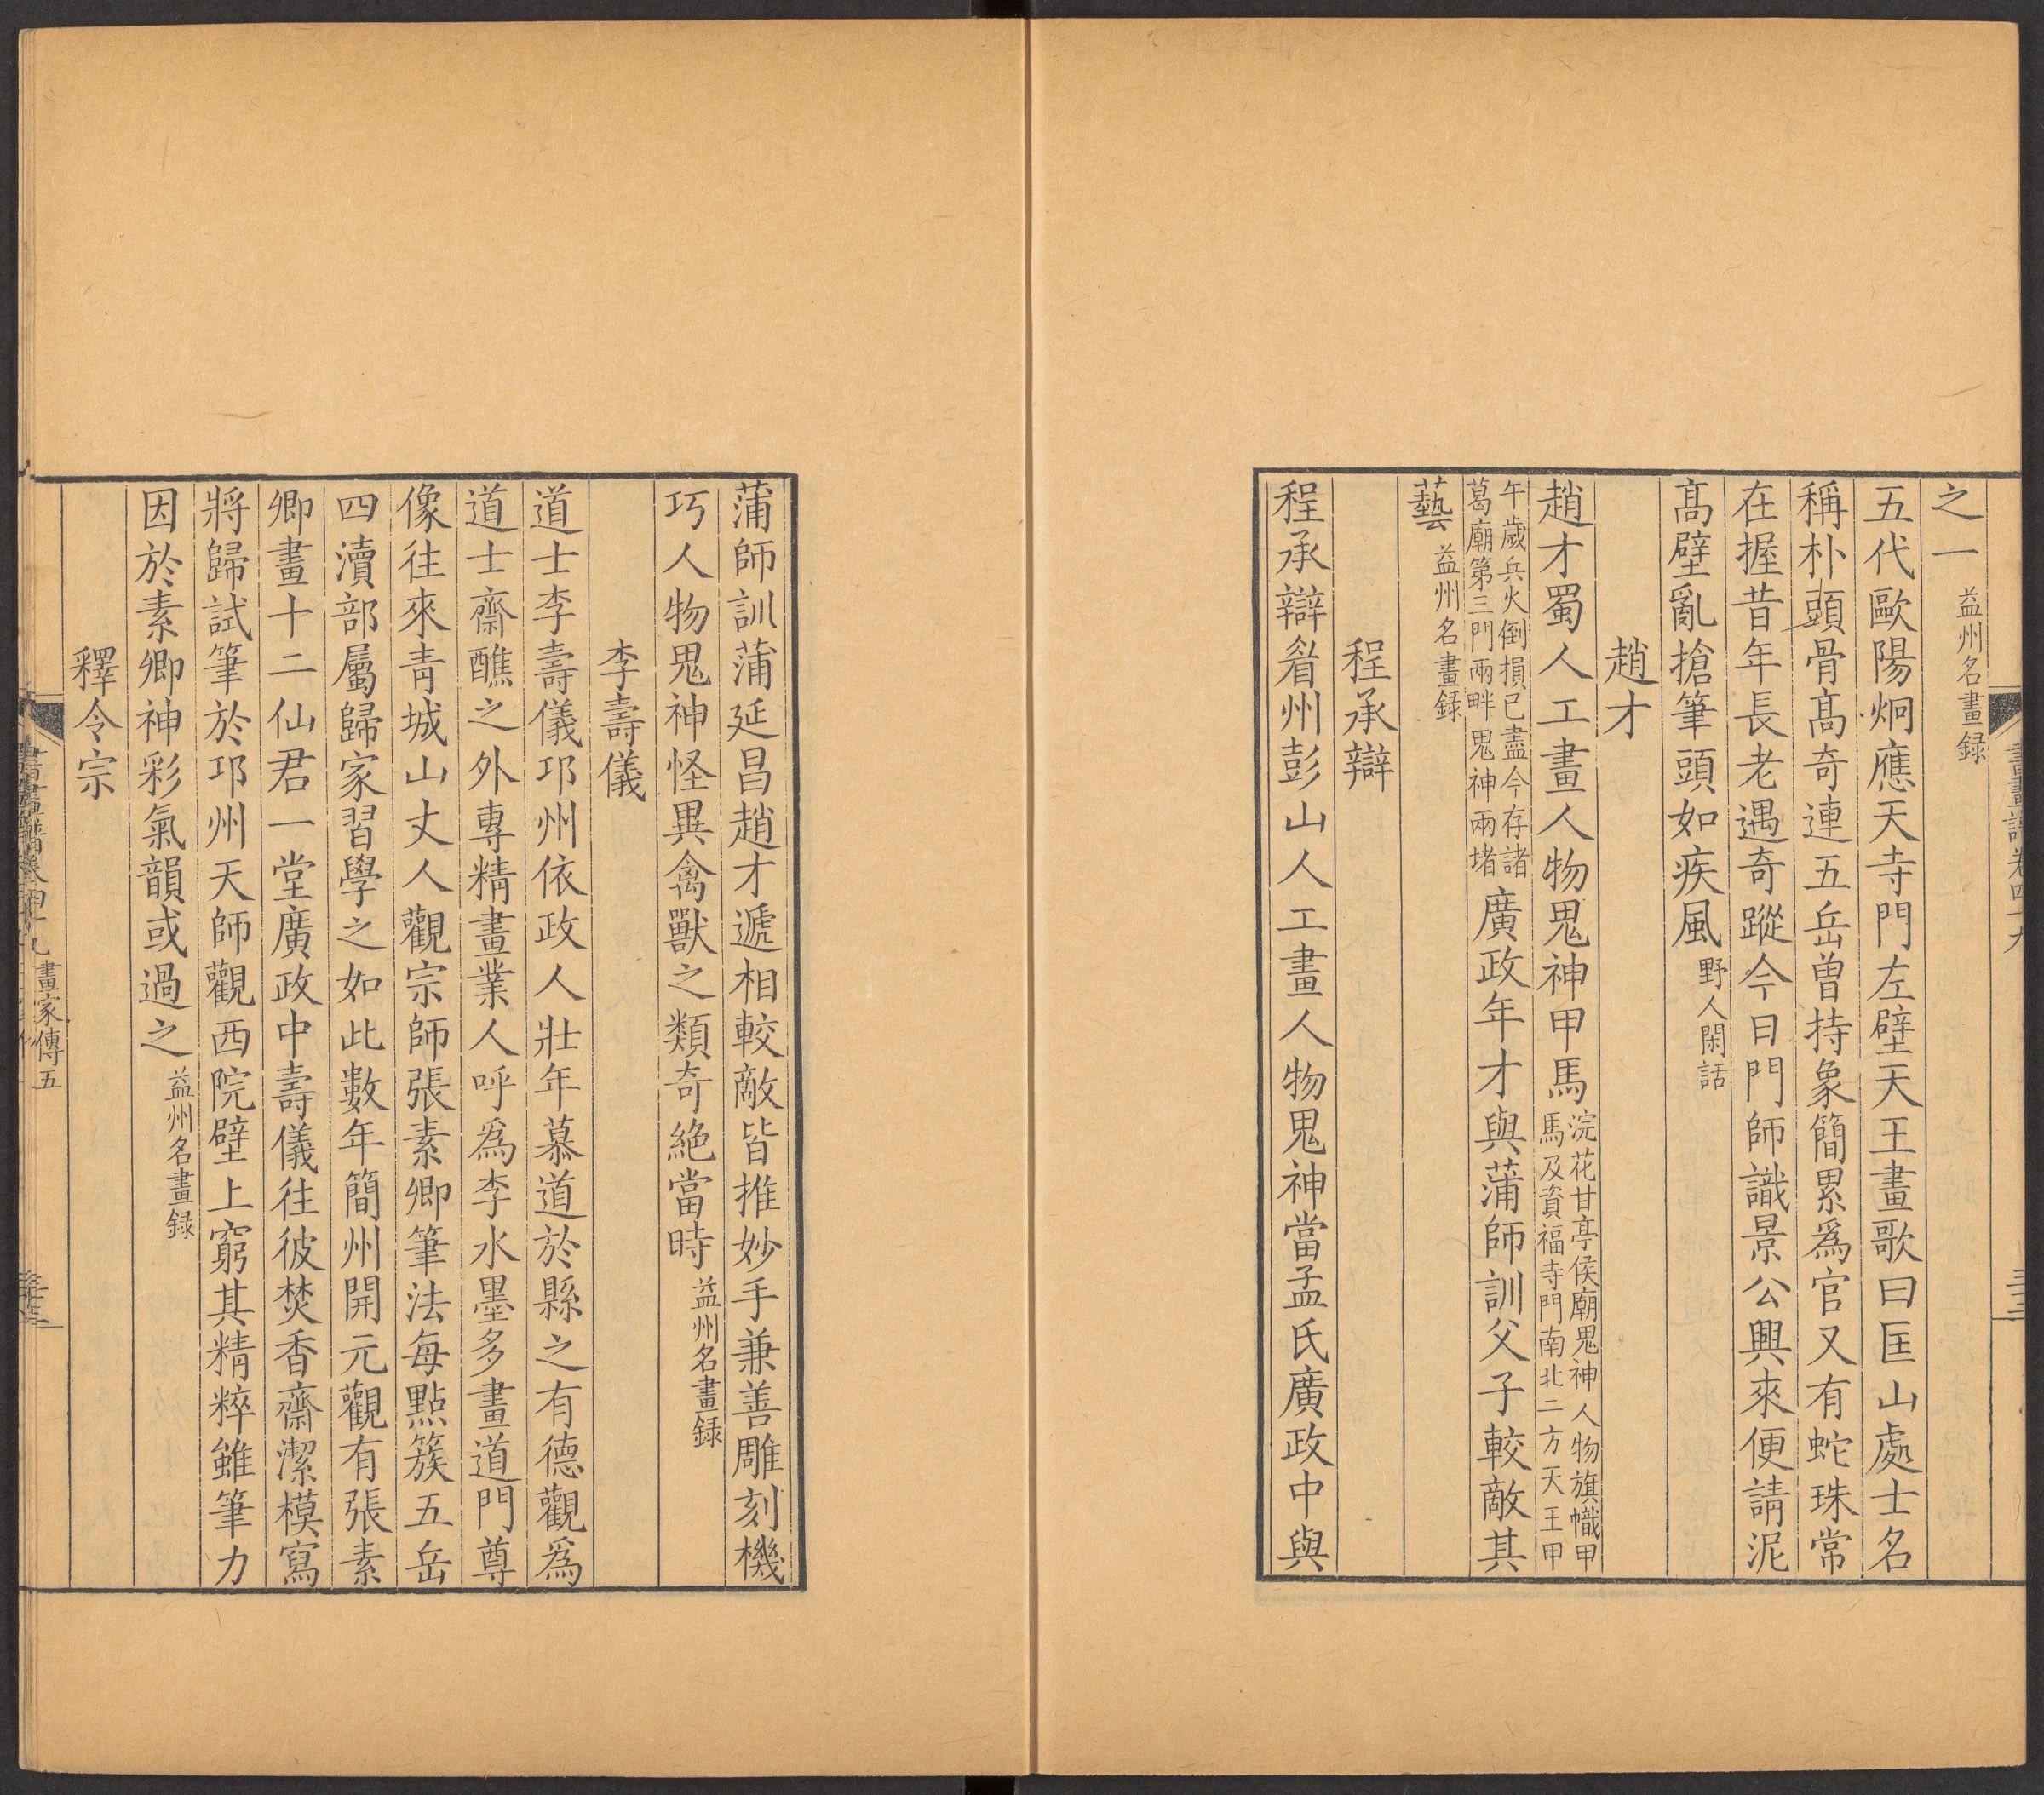 之一益州名畫録
五代歐陽烱應天寺門左壁天王畫歌曰匡山處士名
稱朴頭骨髙奇連五岳曾持象簡累爲官又有蛇珠常
在握昔年長老遇奇蹤今日門師識景公興來便請泥
髙壁亂搶筆頭如疾風野人閑話
趙才
趙才蜀人工畫人物鬼神甲馬浣花甘亭侯廟鬼神人物旗幟甲
馬及資福寺門南北二方天王甲
午歲兵火倒損已盡今存諸
葛廟第三門兩畔鬼神兩堵廣政年才與蒲師訓父子較敵其
藝益州名畫録
程承辯
程承辯眉州彭山人工畫人物鬼神當孟氏廣政中與
蒲師訓蒲延昌趙才遞相較敵皆推妙手兼善雕刻機
巧人物鬼神怪異禽獸之類奇絶當時益州名畫録
李壽儀
道士李壽儀邛州依政人壯年慕道於縣之有德觀爲
道士齋醮之外專精畫業人呼爲李水墨多畫道門尊
像往來青城山丈人觀宗師張素卿筆法每點簇五岳
四瀆部屬歸家習學之如此數年簡州開元觀有張素
卿畫十二仙君一堂廣政中壽儀往彼焚香齋潔模寫
將歸試筆於邛州天師觀西院壁上窮其精粹雖筆力
因於素卿神彩氣韻或過之益州名畫録
釋令宗
畫家傳五